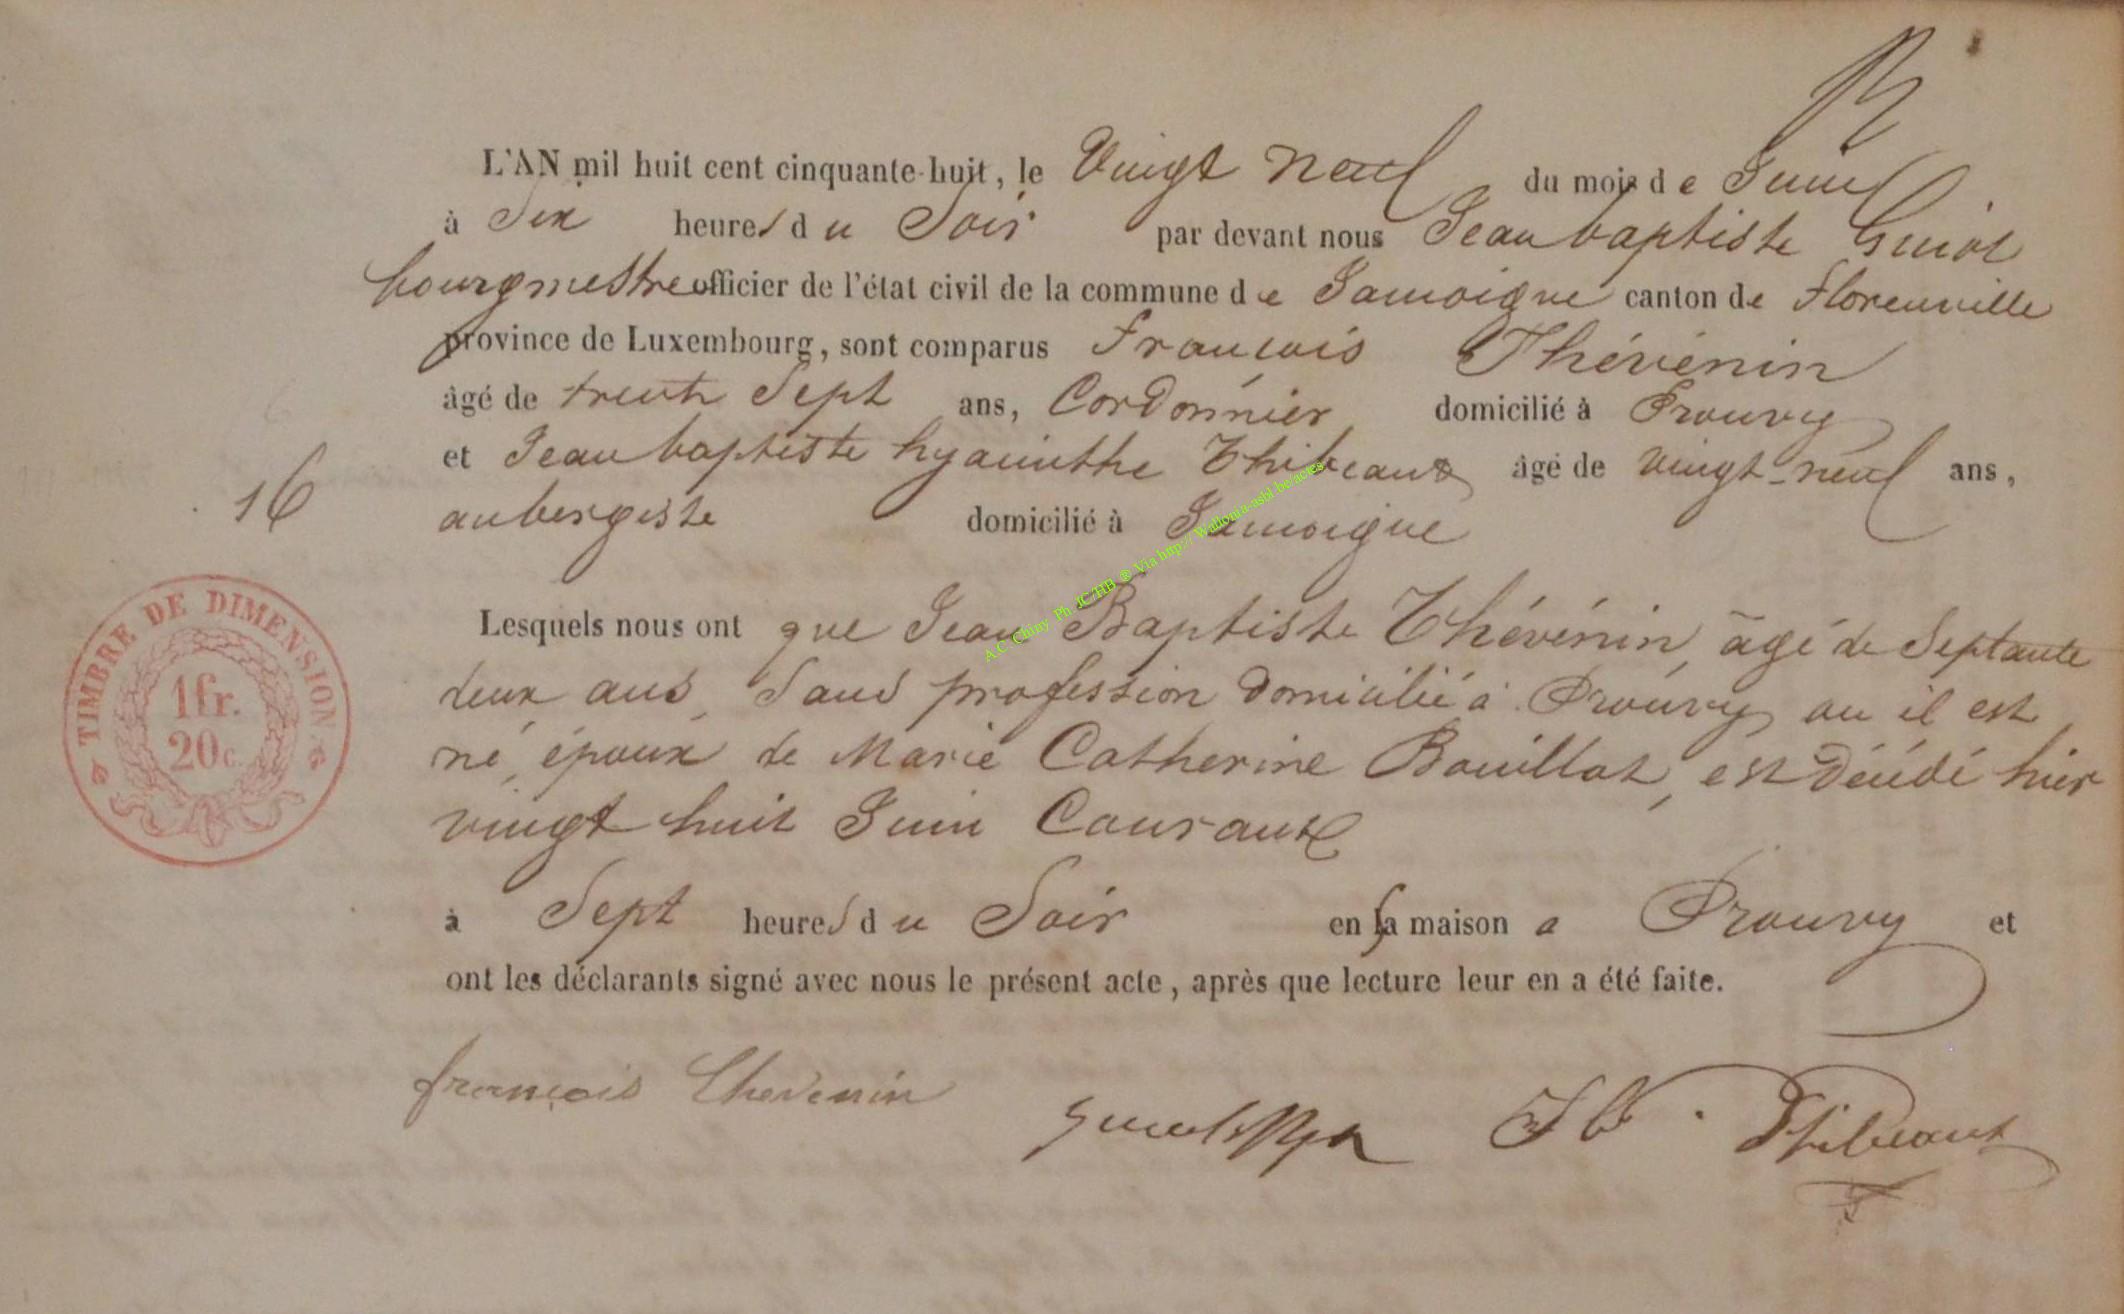 L'AN mil huit cent cinquante-huit, le Vingt neuf du mois de Juin
à Six heures du Soir par devant nous Jean baptiste Guiot
bourgmestre officier de l'état civil de la commune de Jamoigne canton de Florenville
province de Luxembourg, sont comparus François Thévénin
âgé de trente Sept ans, Cordonnier domicilié à Prouvy
et Jean baptiste hyacinthe Thibeaux âgé de vingt-neuf ans,
16
aubergiste domicilié à Jamoigne
A.C. Chiny Ph JC/HB ® Via http://Wallonia-asbl.be/actes
Lesquels nous ont que Jean Baptiste Thévénin, âgé de Septante
deux ans, Sans profession domicilié à Prouvy ou il est
né, époux de Marie Catherine Bouillot, est décédé hier
vingt huit Juin Courant
TIMBRE DE DIMENSION
1fr.
20c.
à Sept heures du Soir en sa maison a Prouvy et
ont les déclarants signé avec nous le présent acte, après que lecture leur en a été faite.
françois Thevenin
Thibeaux